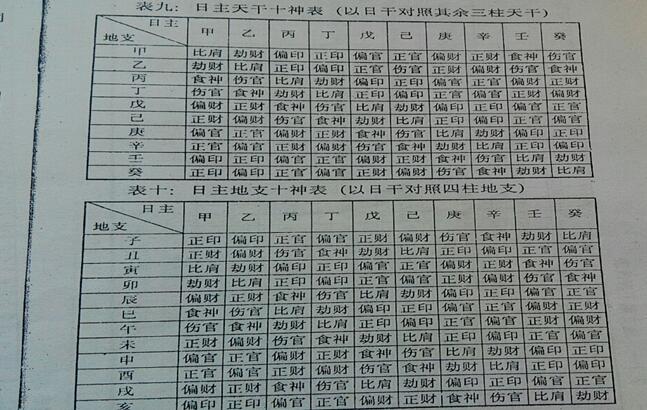 表九：日主天干十神表（以日干对照其余三柱天干）
日主 甲 乙 丙 丁 戊 己 庚 辛 壬 癸
地支
甲 比肩 劫财 偏印 正印 偏官 正官 偏财 正财 食神 伤官
乙 劫财 比肩 正印 偏印 正官 偏官 正财 偏财 伤官 食神
丙 食神 伤官 比肩 劫财 偏印 正印 偏官 正官 偏财 正财
丁 伤官 食神 劫财 比肩 正印 偏印 正官 偏官 正财 偏财
戊 偏财 正财 食神 伤官 比肩 劫财 偏印 正印 偏官 正官
己 正财 偏财 伤官 食神 劫财 比肩 正印 偏印 正官 偏官
庚 偏官 正官 偏财 正财 食神 伤官 比肩 劫财 偏印 正印
辛 正官 偏官 正财 偏财 伤官 食神 劫财 比肩 正印 偏印
壬 偏印 正印 偏官 正官 偏财 正财 食神 伤官 比肩 劫财
癸 正印 偏印 正官 偏官 正财 偏财 伤官 食神 劫财 比肩
表十：日主地支十神表（以日干对照四柱地支）
日主 甲 乙 丙 丁 戊 己 庚 辛 壬 癸
地支
子 正印 偏印 正官 偏官 正财 偏财 伤官 食神 劫财 比肩
丑 正财 偏财 伤官 食神 劫财 比肩 正印 偏印 正官 偏官
寅 比肩 劫财 偏印 正印 偏官 正官 偏财 正财 食神 伤官
卯 劫财 比肩 正印 偏印 正官 偏官 正财 偏财 伤官 食神
辰 偏财 正财 食神 伤官 比肩 劫财 偏印 正印 偏官 正官
巳 食神 伤官 比肩 劫财 偏印 正印 偏官 正官 偏财 正财
午 伤官 食神 劫财 比肩 正印 偏印 正官 偏官 正财 偏财
未 正财 偏财 伤官 食神 劫财 比肩 正印 偏印 正官 偏官
申 偏官 正官 偏财 正财 食神 伤官 比肩 劫财 偏印 正印
酉 正官 偏官 正财 偏财 伤官 食神 劫财 比肩 正印 偏印
戌 偏财 正财 食神 伤官 比肩 劫财 偏印 正印 偏官 正官
亥 偏印 正印 偏官 正官 偏财 正财 食神 伤官 比肩 劫财